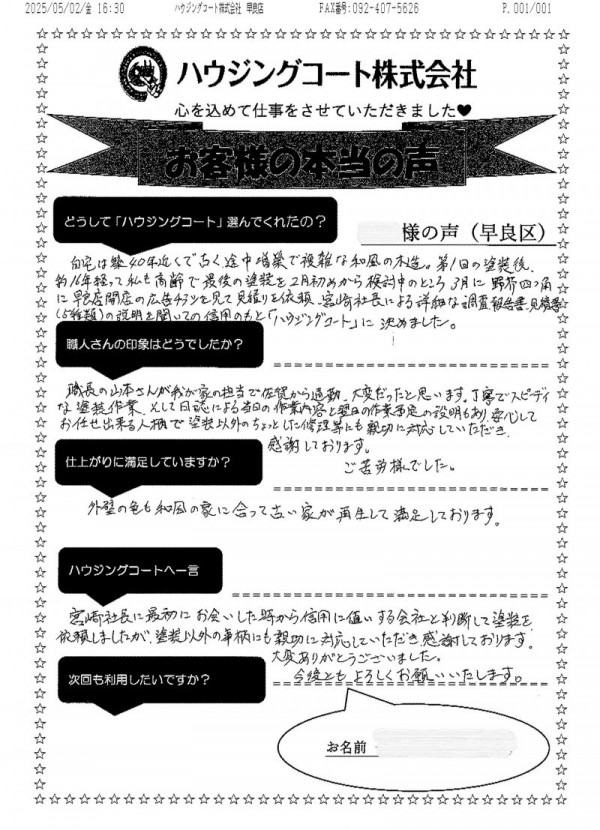 2025/05/02/金 16:30 ハウジングコート株式会社 早良店 FAX番号:092-407-5626 P.001/001
ハウジングコート株式会社
心を込めて仕事をさせていただきました♥
お客様の本当の声
どうして「ハウジングコート」選んでくれたの？
様の声（早良区）
自宅は築40年近くで古く途中増築で複雑な和風の木造。第1回の塗装後、
約16年経って私も高齢で最後の塗装を2月初めから検討中のところ3月に野芥四つ角
に早良店開店の広告チラシを見て見積りを依頼、宮崎社長による詳細な調査報告書、見積書
(5種類)の説明を聞いての信用のもと「ハウジングコート」に決めました。
職人さんの印象はどうでしたか？
職長の山本さんが我が家の担当で佐賀から通勤、大変だったと思います。丁寧でスピーディ
な塗装作業、そして日誌による当日の作業内容と翌日の作業予定の説明もあり、安心して
お任せ出来る人柄で塗装以外のちょっとした修理等にも親切に対応していただき、
感謝しております。
ご苦労様でした。
仕上がりに満足していますか？
外壁の色も和風の家に合って古い家が再生して満足しております。
ハウジングコートへ一言
宮崎社長に最初にお会いした時から信用に値いする会社と判断して塗装を
依頼しましたが、塗装以外の事柄にも親切に対応していただき感謝しております。
大変ありがとうございました。
次回も利用したいですか？
今後ともよろしくお願いいたします。
お名前